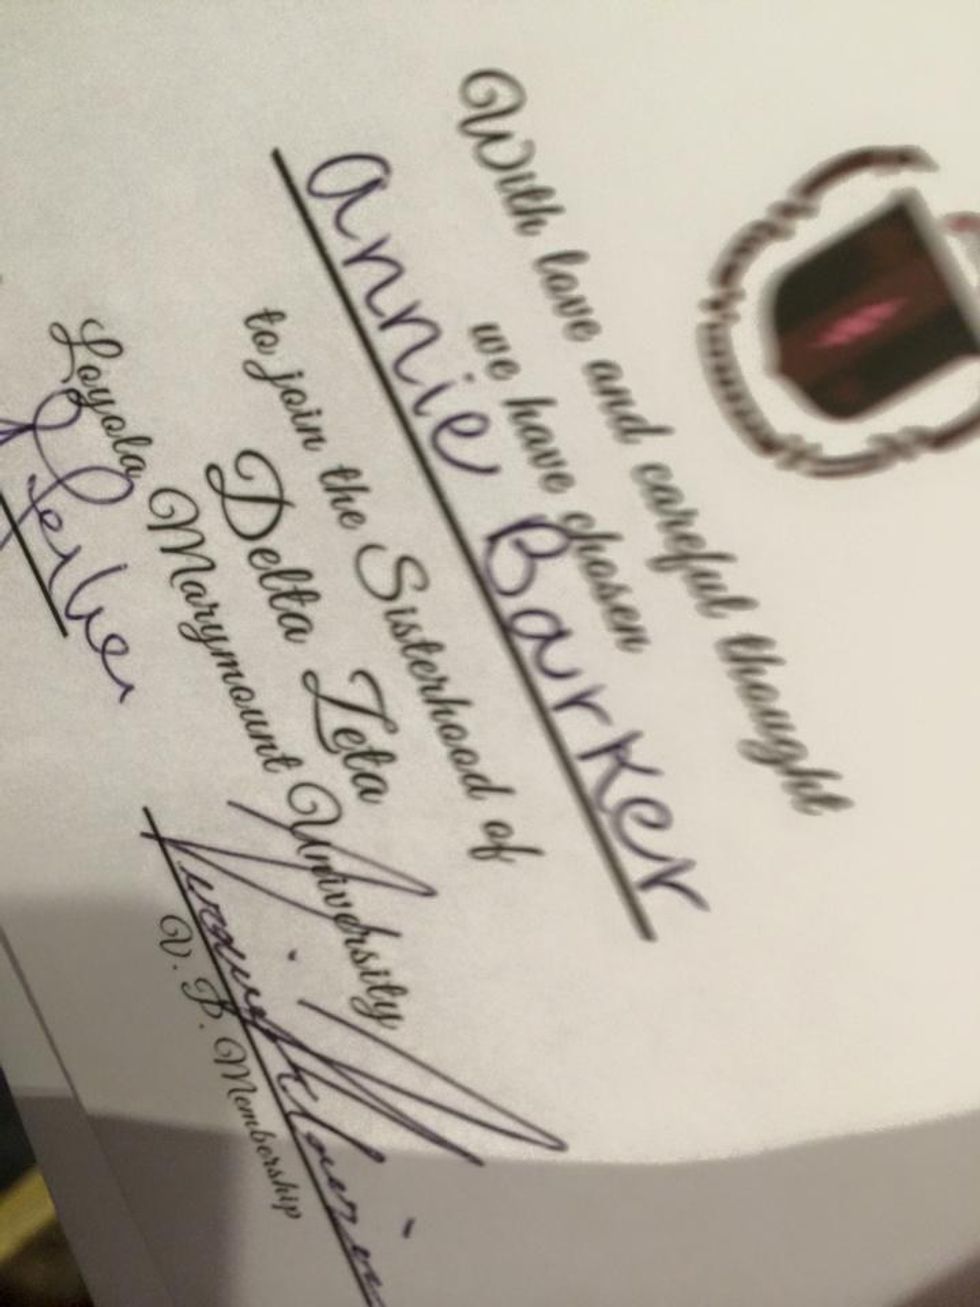 With love and careful thought
we have chosen
annie Barker
to join the Sisterhood of
Delta Zeta
Loyola Marymount University
V. P. Membership